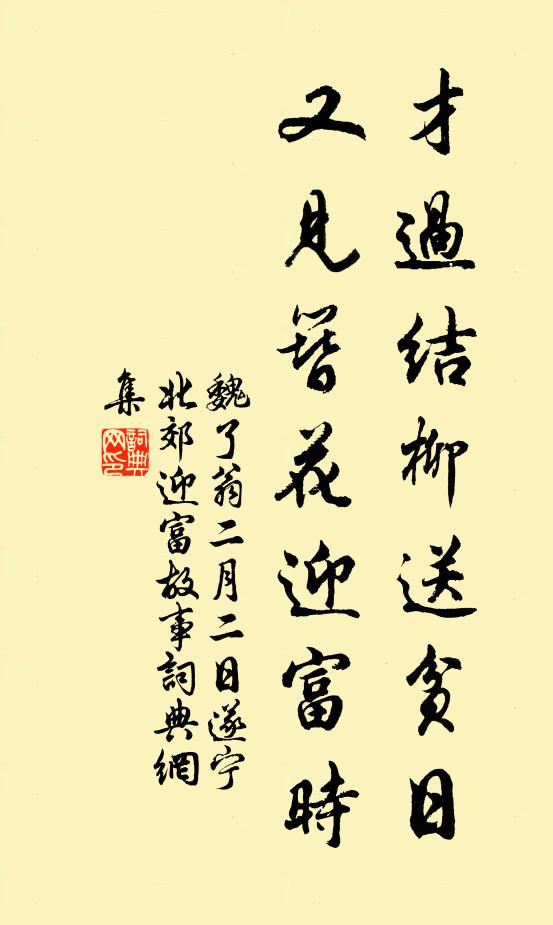 才過結柳送貧日
又見簪花迎富時
魏了翁二月二日遂宁
北郊迎富故事詞典網
集
詞典
网印